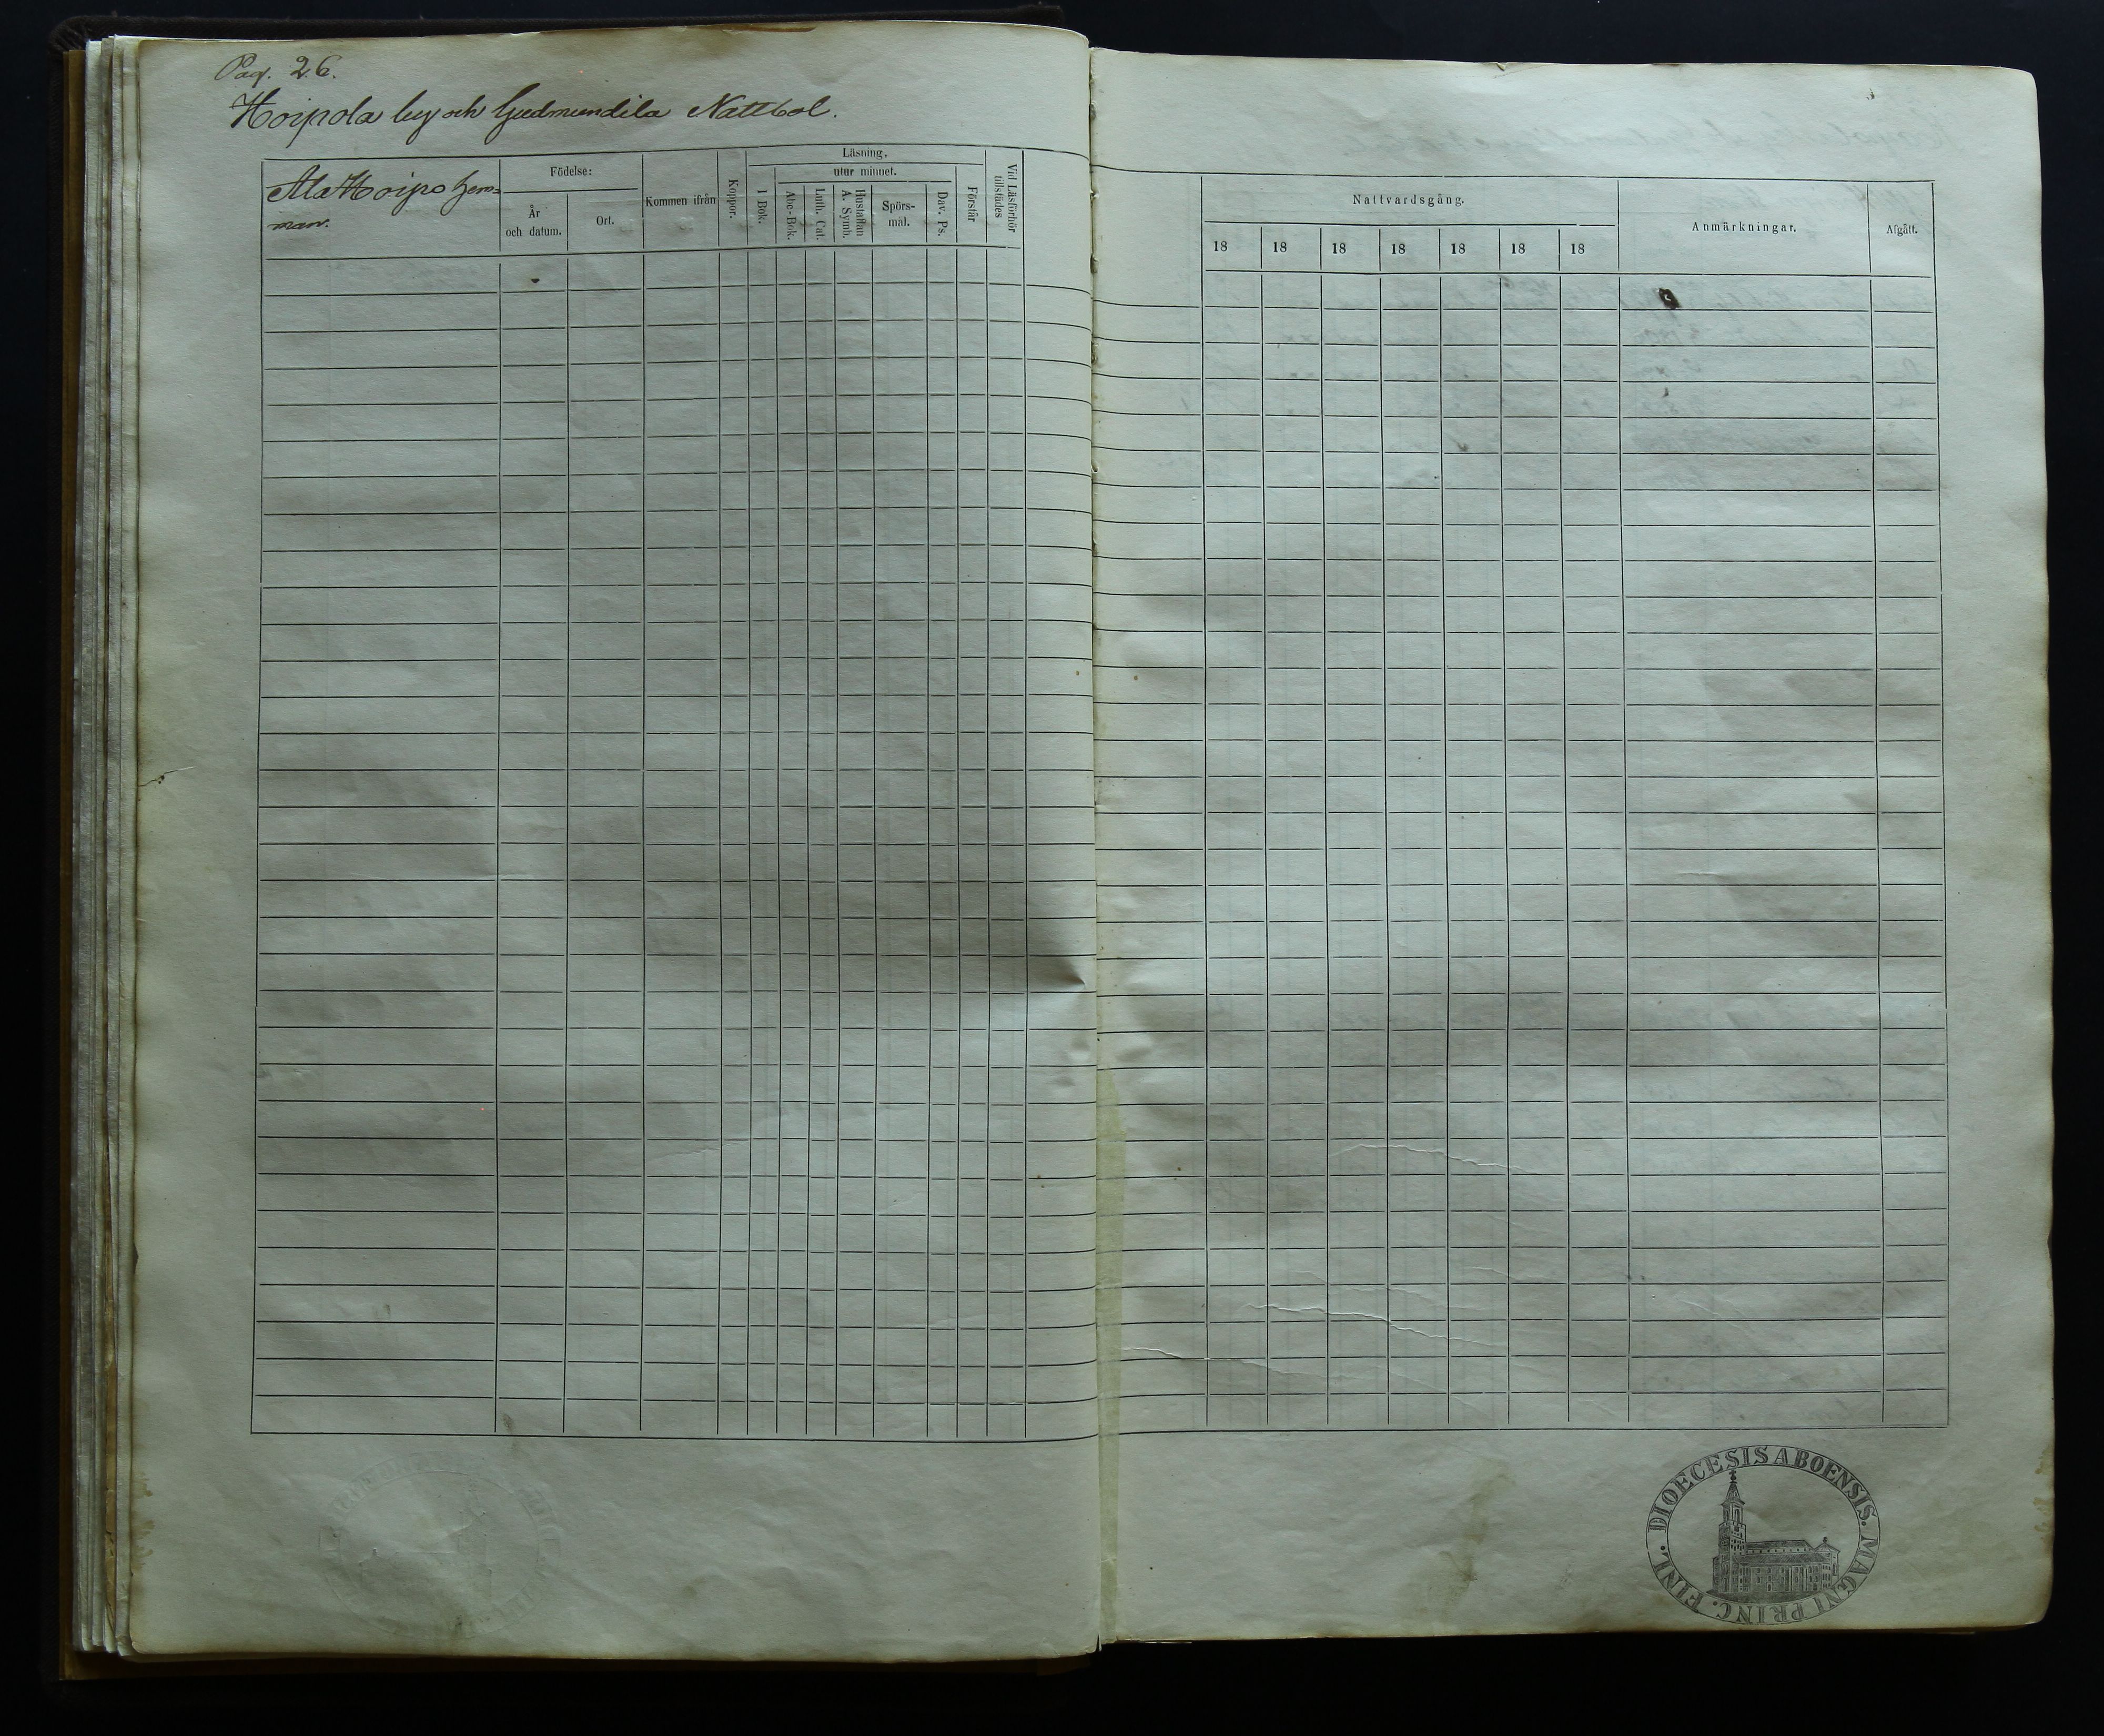 Pag. 26.
Hoipola by och Gudmundila Nattbol.
Ala Hoipo hem=
man.
Födelse:
År
och datum.
Ort.
Kommen ifrån
Koppor.
Läsning,
utur minnet.
I Bok.
Abc-Bok.
Luth. Cat.
Hustaflan
A. Symb.
Spörs-
mål.
Dav. Ps.
Förstår
Vid Läsförhör
tillstädes
Nattvardsgång.
18 18 18 18 18 18 18
Anmärkningar.
Afgått.
DIOECESIS ABOENSIS. MAGNI PRINC. FINL.